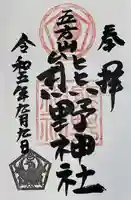 奉拝
五方山
熊野神社
令和 年九月九日